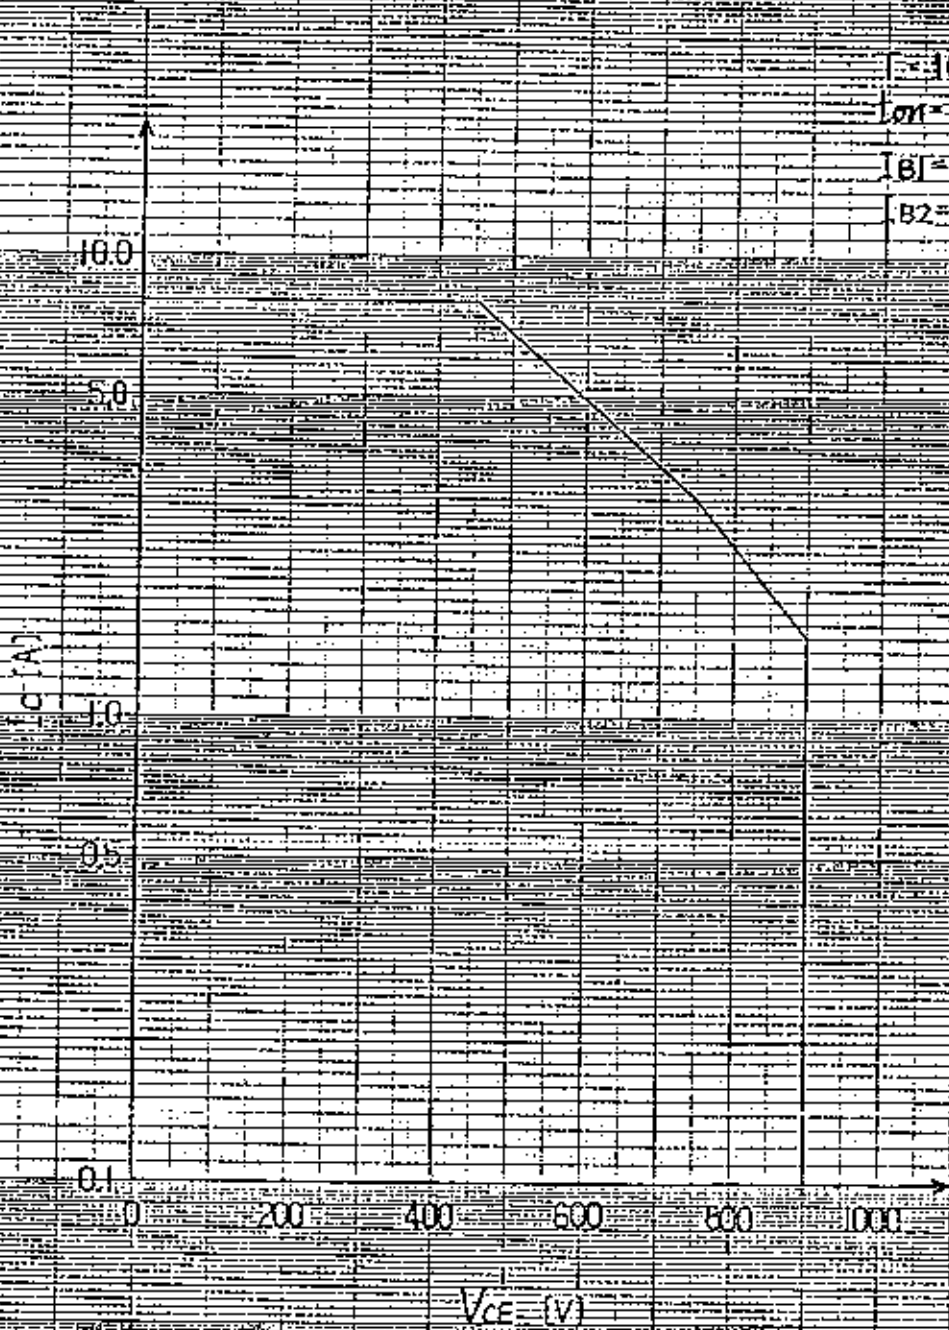 Ion=
IB1=
IB2=
10.0
5.0
IC [A]
1.0
0.5
0.1
0 200 400 600 800 1000
VCE [V]